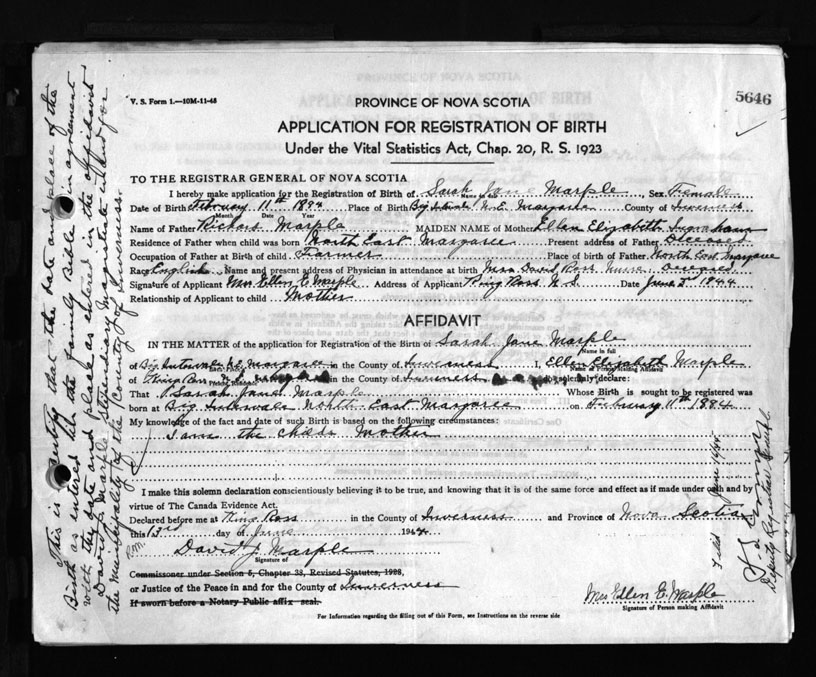 5646
V. S. Form 1.—10M-11-43
PROVINCE OF NOVA SCOTIA
APPLICATION FOR REGISTRATION OF BIRTH
Under the Vital Statistics Act, Chap. 20, R. S. 1923
TO THE REGISTRAR GENERAL OF NOVA SCOTIA
I hereby make application for the Registration of Birth of Sarah Jane Marple, Sex Female
Date of Birth February 11th 1884 Place of Birth Big Margaree County of Inverness
Month Date Year
Name of Father Richard Marple MAIDEN NAME of Mother Ellen Elizabeth Ingraham
Residence of Father when child was born North East Margaree Present address of Father Deceased
Occupation of Father at Birth of child Farmer Place of birth of Father North East Margaree
Race English Name and present address of Physician in attendance at birth Mrs David Ross nurse
Signature of Applicant Mrs Ellen E. Marple Address of Applicant King Ross N. S. Date June 1944
Relationship of Applicant to child Mother
AFFIDAVIT
IN THE MATTER of the application for Registration of the Birth of Sarah Jane Marple
Name in full
of Big Intervale N.E. Margaree in the County of Inverness I, Ellen Elizabeth Marple
Name of Person Making Affidavit
of King Ross in the County of Inverness do solemnly declare:
That Sarah Jane Marple Whose Birth is sought to be registered was
born at Big Intervale North East Margaree on February 11th 1884
My knowledge of the fact and date of such Birth is based on the following circumstances:
I am the childs Mother
I make this solemn declaration conscientiously believing it to be true, and knowing that it is of the same force and effect as if made under oath and by
virtue of The Canada Evidence Act.
Declared before me at King Ross in the County of Inverness and Province of Nova Scotia
this day of June 1944
David J. Marple
Signature of
Commissioner under Section 6, Chapter 38, Revised Statutes, 1923,
or Justice of the Peace in and for the County of Inverness
If sworn before a Notary Public affix seal.
Mrs Ellen E. Marple
Signature of Person making Affidavit
For Information regarding the filling out of this Form, see Instructions on the reverse side
This is to certify that the date and place of the
Birth as entered in the family Bible is in agreement
with the date and place as entered in the affidavit
David J Marple Stipendiary Magistrate in and for
the municipality of the County of Inverness.
Filed June 16/44
Deputy Registrar General